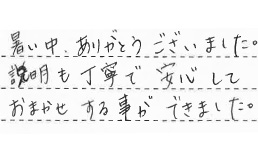 暑い中、ありがとうございました。
説明も丁寧で安心して
おまかせする事ができました。